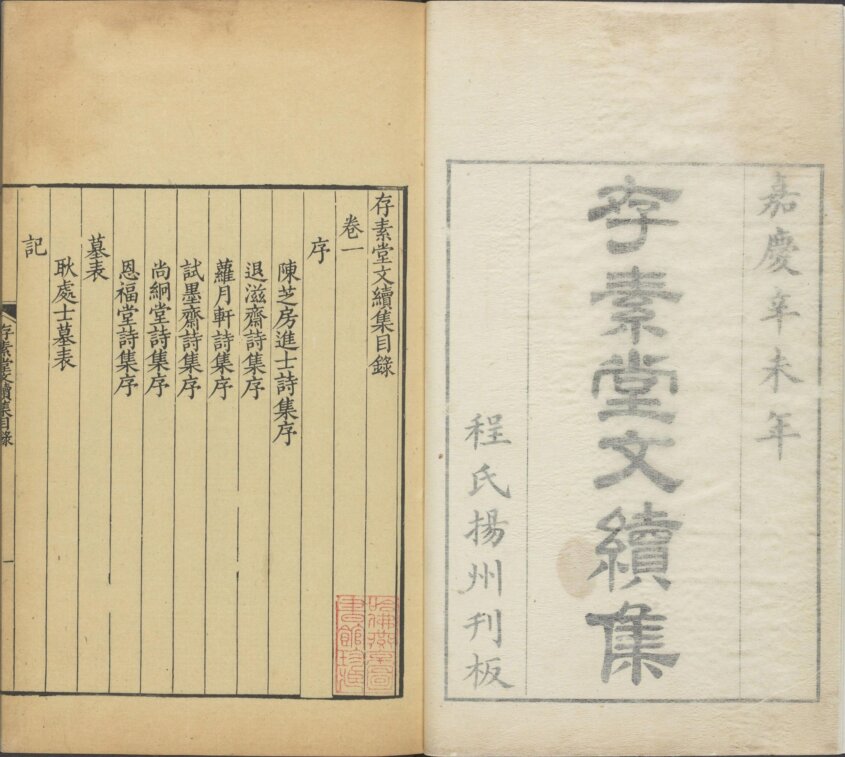 嘉慶辛未年
存素堂文續集
程氏揚州刊板
存素堂文續集目錄
卷一
序
陳芝房進士詩集序
退滋齋詩集序
蘿月軒詩集序
試墨齋詩集序
尚絅堂詩集序
恩福堂詩集序
墓表
耿處士墓表
記
存素堂文續集目錄
一
哈佛燕京圖
書館珍藏